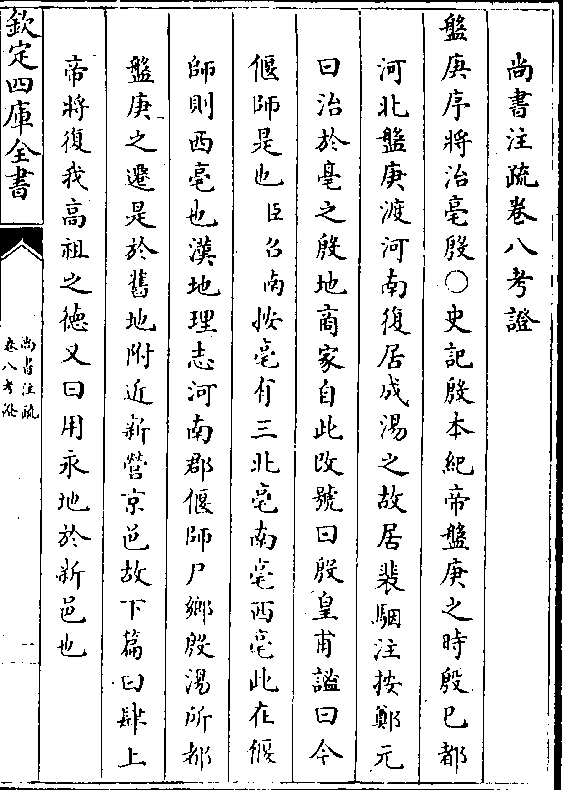 尚書注疏卷八考證
盤庚序將治亳殷〇史記殷本紀帝盤庚之時殷已都
河北盤庚渡河南復居成湯之故居裴駰注按鄭元
曰治於亳之殷地商家自此改號曰殷皇甫謐曰今
偃師是也臣召南按亳有三北亳南亳西亳此在偃
師則西亳也漢地理志河南郡偃師尸鄉殷湯所都
盤庚之遷是於舊地附近新營京邑故下篇曰肆上
帝將復我高祖之徳又曰用永地於新邑也
欽定四庫全書
尚書注疏
卷八考證
一